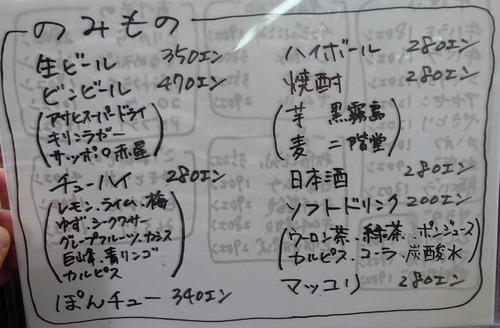 のみもの
生ビール 350エン
ビンビール 470エン
(アサヒスーパードライ
キリンラガー
サッポロ赤星)
チューハイ 280エン
(レモン、ライム、梅
ゆず、シークワサー
グレープフルーツ、カシス
巨山峰、青リンゴ
カルピス)
ぽんチュー 340エン
ハイボール 280エン
焼酎 280エン
(芋 黒霧島
麦 二階堂)
日本酒 280エン
ソフトドリンク 200エン
(ウーロン茶、緑茶、ポンジュース
カルピス、コーラ、炭酸水)
マッコリ 280エン